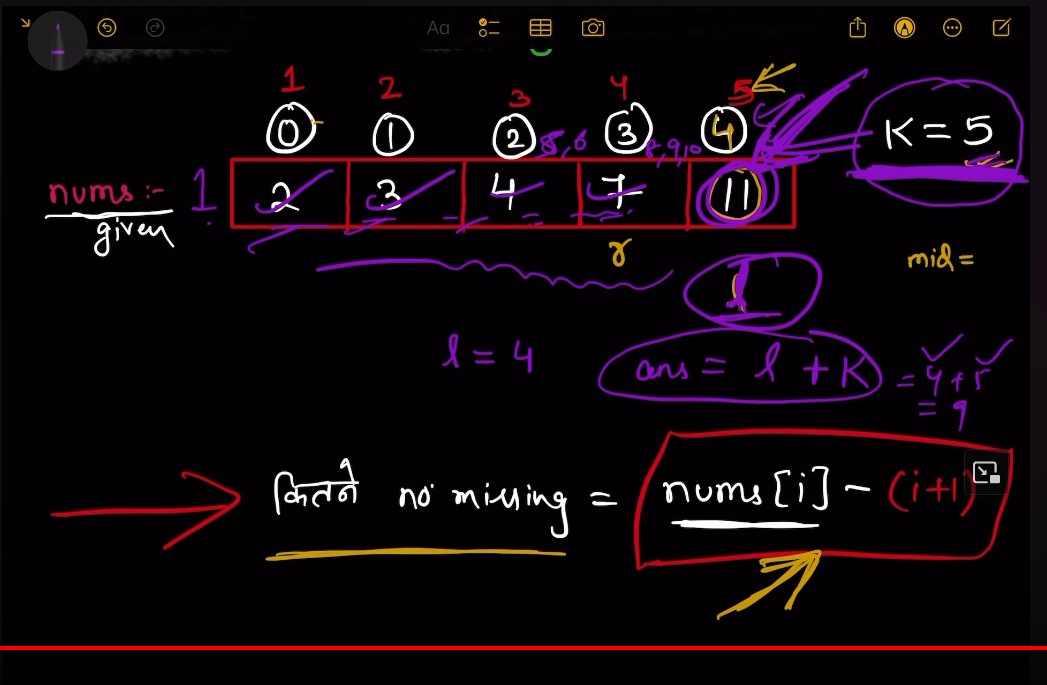 Aa
1 2 3 4 5
0 1 2 3 4
K = 5
5,6 8,9,10
nums :- 1 2 3 4 7 11
given
r
mid =
l
l = 4 ans = l + K = 4 + 5
= 9
कितने no missing = nums [i] - (i+1)